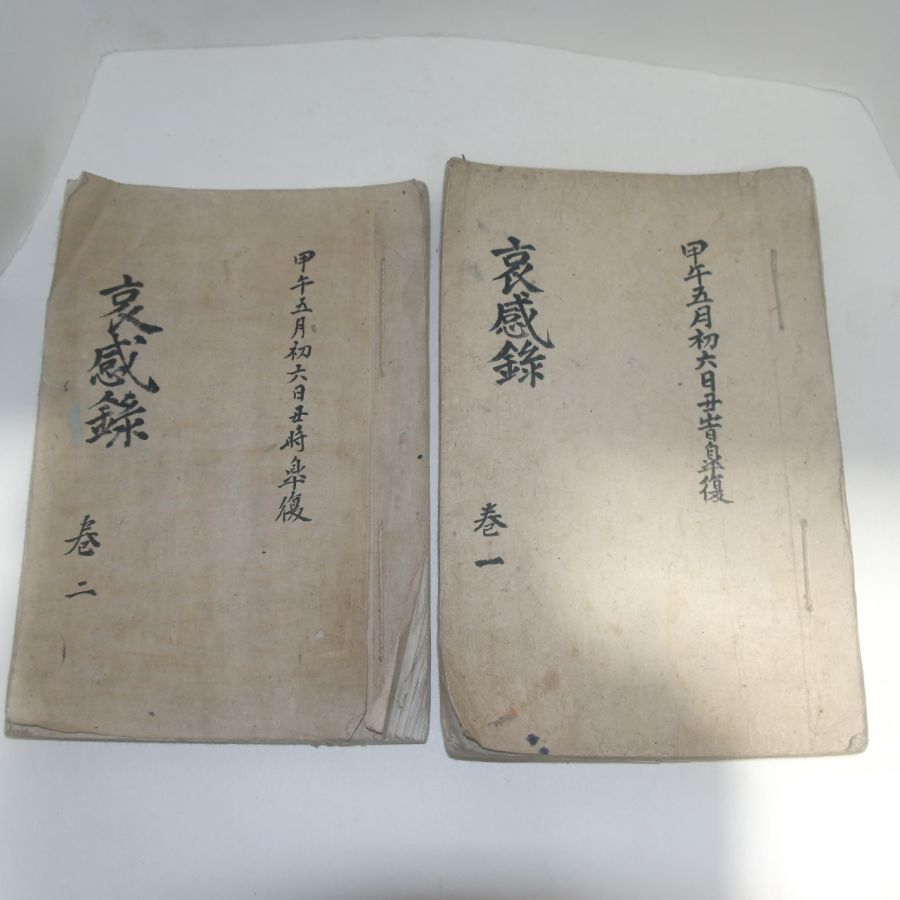 甲午五月初六日丑時皐復
哀感錄
卷一
甲午五月初六日丑時皐復
哀感錄
卷二